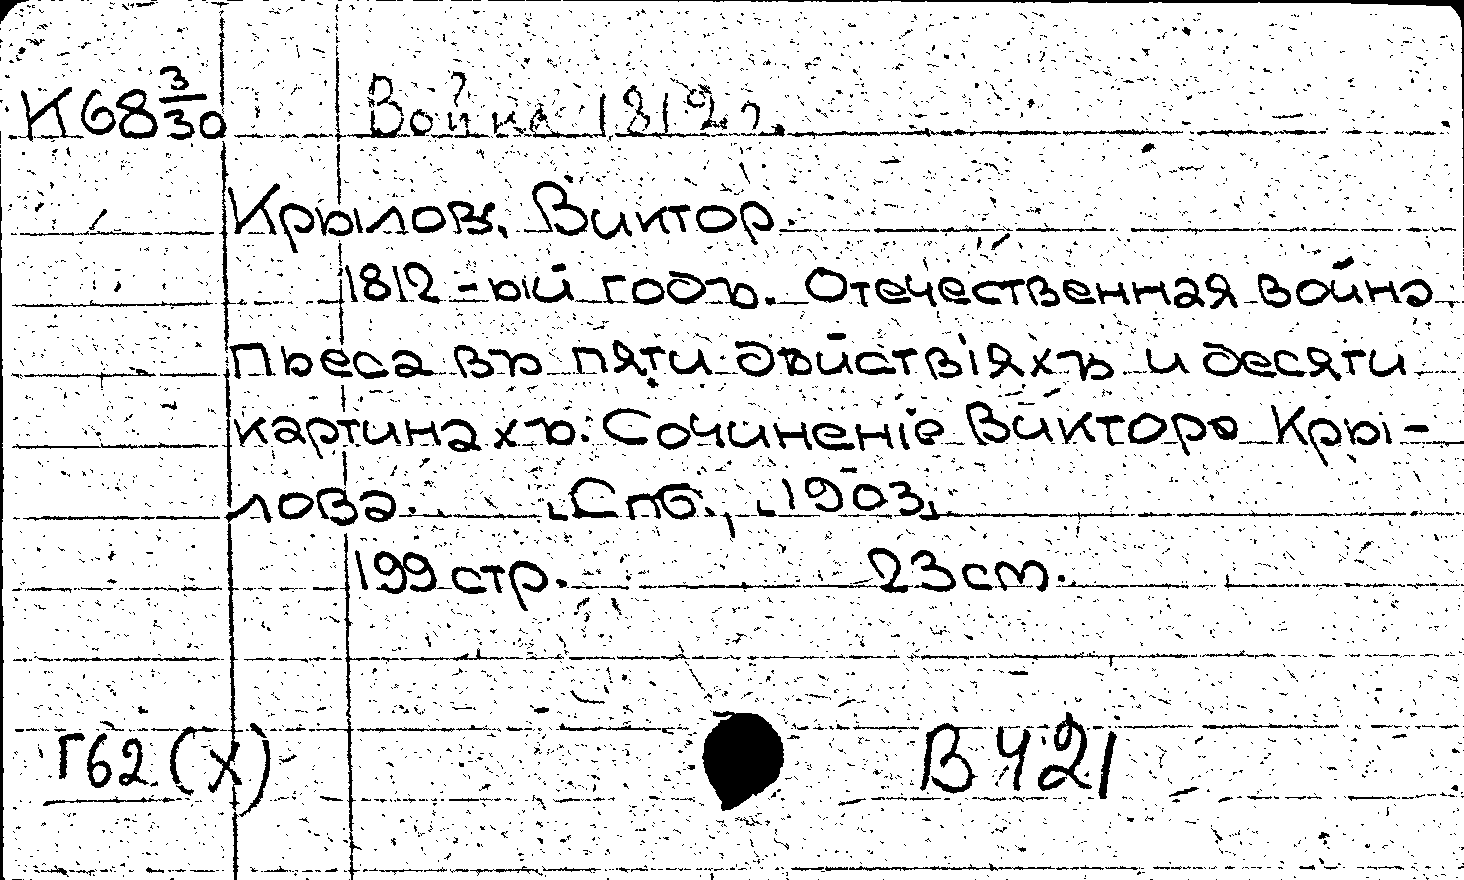 К68 3/30 Война 1812 г.
Крыловъ, Виктор.
1812-ый годъ. Отечественная война
Пьеса въ пяти дѣйствіяхъ и десяти
картинахъ. Сочиненіе Виктора Кры-
лова. Спб., 1903,
199 стр. 23 cm.
Г62 (X) В 421